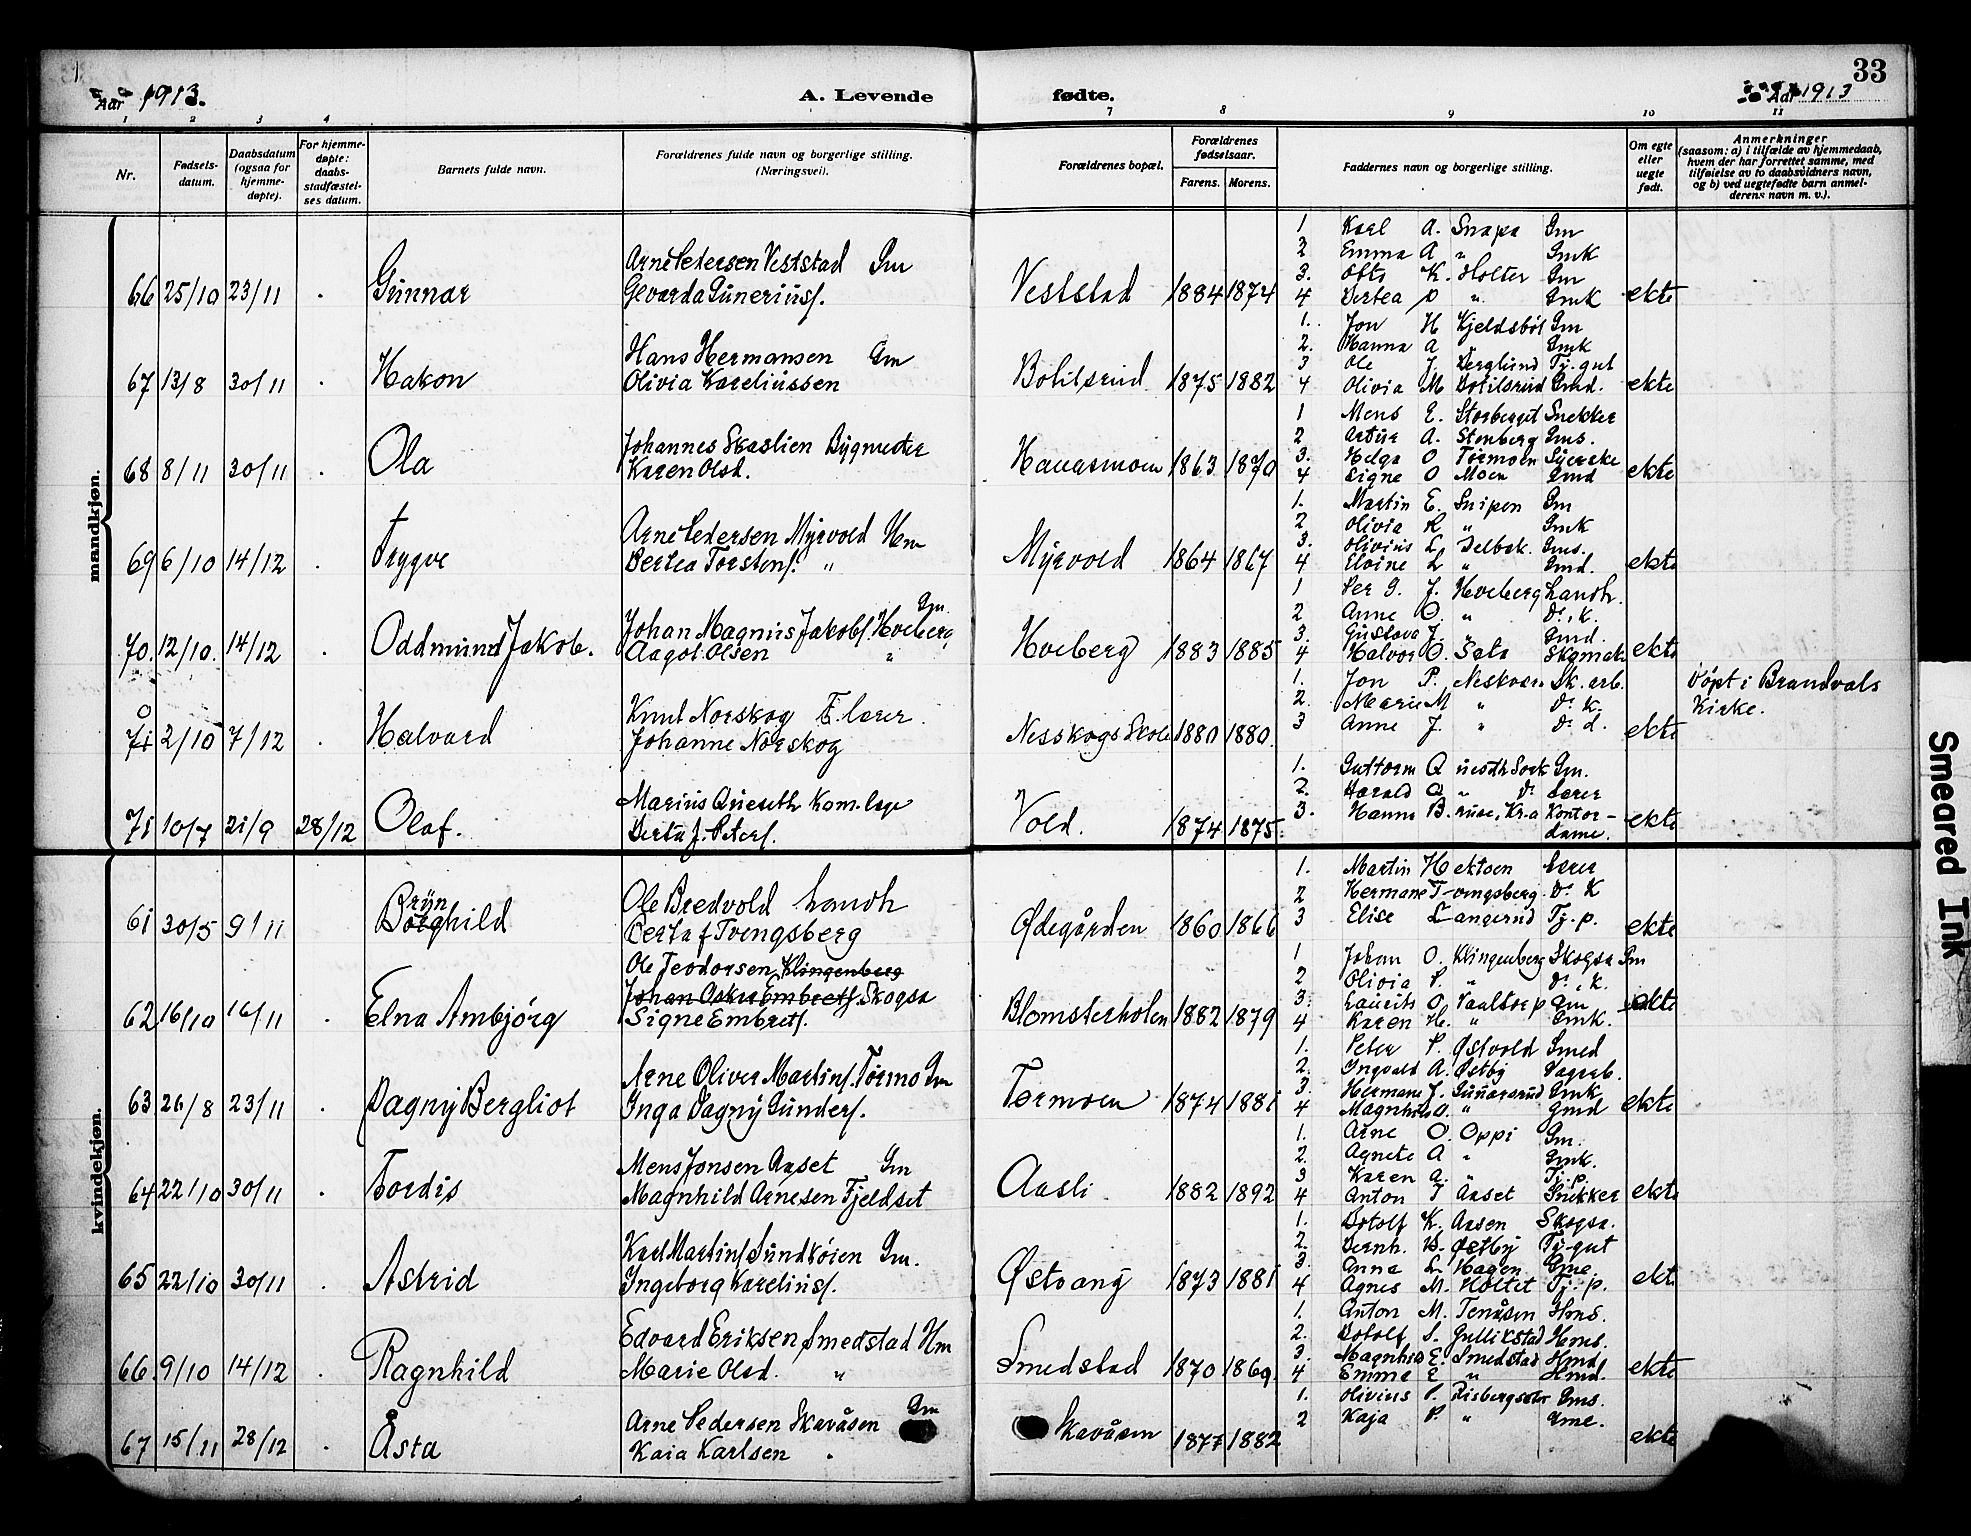 Aar 1913.
A. Levende
fødte.
Aar 1913
33
1 2 3 4 7 8 9 10 11
Nr.
Fødsels-
datum.
Daabsdatum
(ogsaa for
hjemme-
døpte).
For hjemme-
døpte:
daabs-
stadfæstel-
ses datum.
Barnets fulde navn.
Forældrenes fulde navn og borgerlige stilling.
(Næringsvei).
Forældrenes bopæl.
Forældrenes
fødselsaar.
Farens. Morens.
Faddernes navn og borgerlige stilling.
Om egte
eller
uegte
født.
Anmerkninger
(saasom: a) i tilfælde av hjemmedaab,
hvem der har forrettet samme, med
tilføielse av to daabsvidners navn,
og b) ved uegtefødte barn anmel-
derens navn m. v.).
mandkjøn.
66 25/10 23/11 Gunnar
Arne Pedersen Veststad Gm
Gevarda Guneriusf.
Veststad 1884 1874
1 Karl A. Snapa Gm
2 Emma A " Gmk
3. Ofte K. Holter Gm
4 Bertea O " Gmk
ekte
67 13/8 30/11 Hakon
Hans Hermansen Gm
Olivia Kareliussen
Botilsrud 1875 1882
1. Jon H Kjeldsbøl Gm
2. Hanna A Gmk
3 Ole J. Berglund Tj. gut
4 Olivia M Botilsrud Gmd.
ekte
68 8/11 30/11 Ola
Johannes Skaslien Bygmester
Karen Olsd.
Haugsmoen 1863 1870
1 Mens E. Storberget Snekker
2 Artur A. Stenberg Gms.
3. Helga O Tormoen Syerske
4 Signe O Moen Gmd
ekte
69 6/10 14/12 Trygve
Arne Pedersen Myrvold Hm
Bertea Torstensf. "
Myrvold 1864 1867
1. Martin E. Snipen Gm
2. Olivia K " Gmk
3. Olivius L Selbek. Gms.
4 Eloine L " Gmd.
ekte
70. 12/10. 14/12 Oddmund Jakob.
Johan Magnus Jakobs. Hveberg Gm.
Aagot Olsen "
Hveberg 1883 1885
1 Per G. J. Hveberg Landh.
2 Anne O. " Do. K.
3. Gustava J. " Gmd.
4 Halvor O. Sata Skomak
ekte
71 2/10 7/12 Halvard
Knut Norskog E. lærer.
Johanne Norskog
Nesskogs Skole 1880 1880.
1. Jon P. Neskoen Sk. arb.
2. Marie M " Do. K.
3 Anne J. " Do. d.
ekte
Døpt i Brandvals
Kirke.
71 10/7 21/9 28/12 Olaf.
Marius Queseth Kom. læge
Berta f. Peters.
Vold. 1874 1875.
1. Guttorm Queseth Gm.
2. Harald Q " Do Lærer
3. Hanna Bruse, Kr.a Kontor-
dame.
ekte
kvindekjøn.
61 30/5 9/11 Borghild
Bryn
Ole Bredvold Landh
Berta f Tvengsberg
Ødegården 1860 1866
1. Martin Hektoen Lærer
2 Hermane Tvengsberg Do. K
3 Elise Langerud Tj. p.
ekte
62 16/10 16/11 Elna Ambjörg
Ole Teodorsen Klingenberg
Johan Oskar Embretf. Skogsa
Signe Embretf.
Blomsterholen 1882 1879
1 Johan O. Klingenberg Skogsa Gm
2 Olivia P. " Do. K.
3. Laurits O. Vaaltorp Gm
4 Karen H. " Gmk.
ekte
63 26/8 23/11 Dagny Bergliot
Arne Oliver Martinf. Tørmo Gm
Inga Dagny Gunderf.
Tørmoen 1874 1881
1. Peter P. Østvold Smed
2. Ingvald A. Østby Dagarb.
3. Hermane J. Gunarsrud Gmk
4 Magnhild O. " Gmd
ekte
64 22/10 30/11 Tordis
Mens Jonsen Aaset Gm
Magnhild Arnesen Fjeldset
Aasli. 1882 1892
1. Arne O. Oppi Gm.
2. Agnete A " Gmk.
3 Karen A. " Tj. p.
4 Anton T Aaset Snikker
ekte
65 22/10 30/11 Astrid
Karl Martinf Sundkøien Gm.
Ingeborg Kareliusf.
Østvang 1873 1881
1. Botolf K. Aasen Skogsa.
2. Bernh. B. Østby Tj-gut
3. Anna L. Hagen Gme.
4 Agnes M. Holtet Tj. p.
ekte
66. 9/10 14/12 Ragnhild
Edvard Eriksen Smedstad Hm
Marie Olsd. "
Smedstad 1870 1869.
1. Anton M. Tenåsen Hms.
2. Botolf S. Gullikstad Hms.
3. Magnhild E. Smedstad Hmd.
4 Emma E " Hmd.
ekte
67 15/11 28/12 Åsta
Arne Pedersen Skavåsen Gm
Kaia Karlsen
Skavåsen 1877 1882
1. Olivius P. Risbergseter Gms.
2 Kaja P. " Gme.
ekte
Smeared Ink